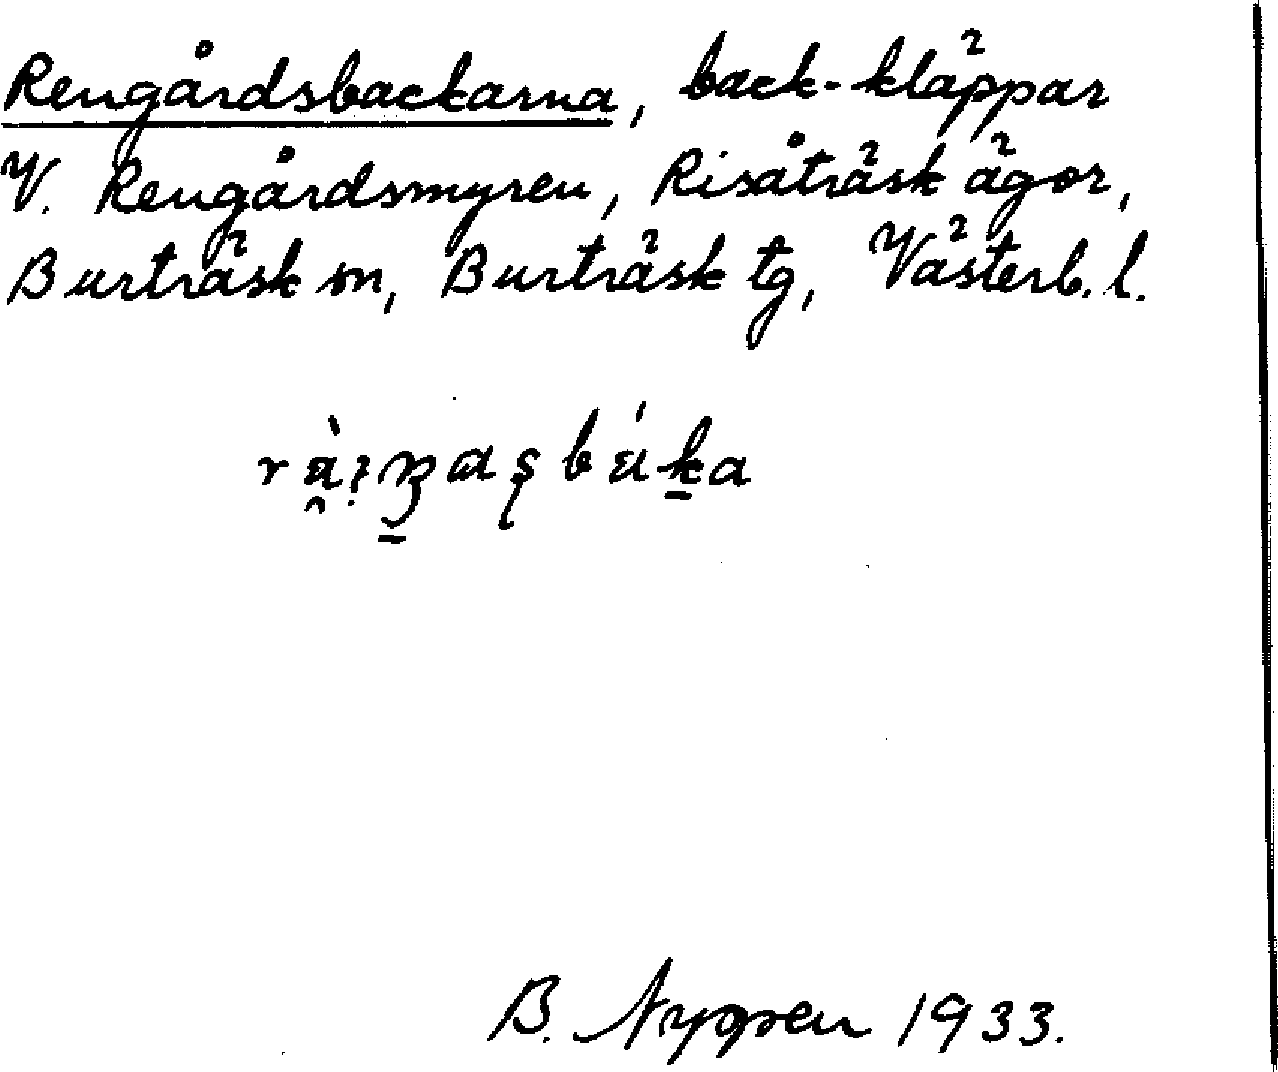 Rengårdsbackarna, back-kläppar
V. Rengårdsmyren, Risåträsk ägor,
Burträsk sn, Burträsk tg, Västerb. l.
B. Nygren 1933.